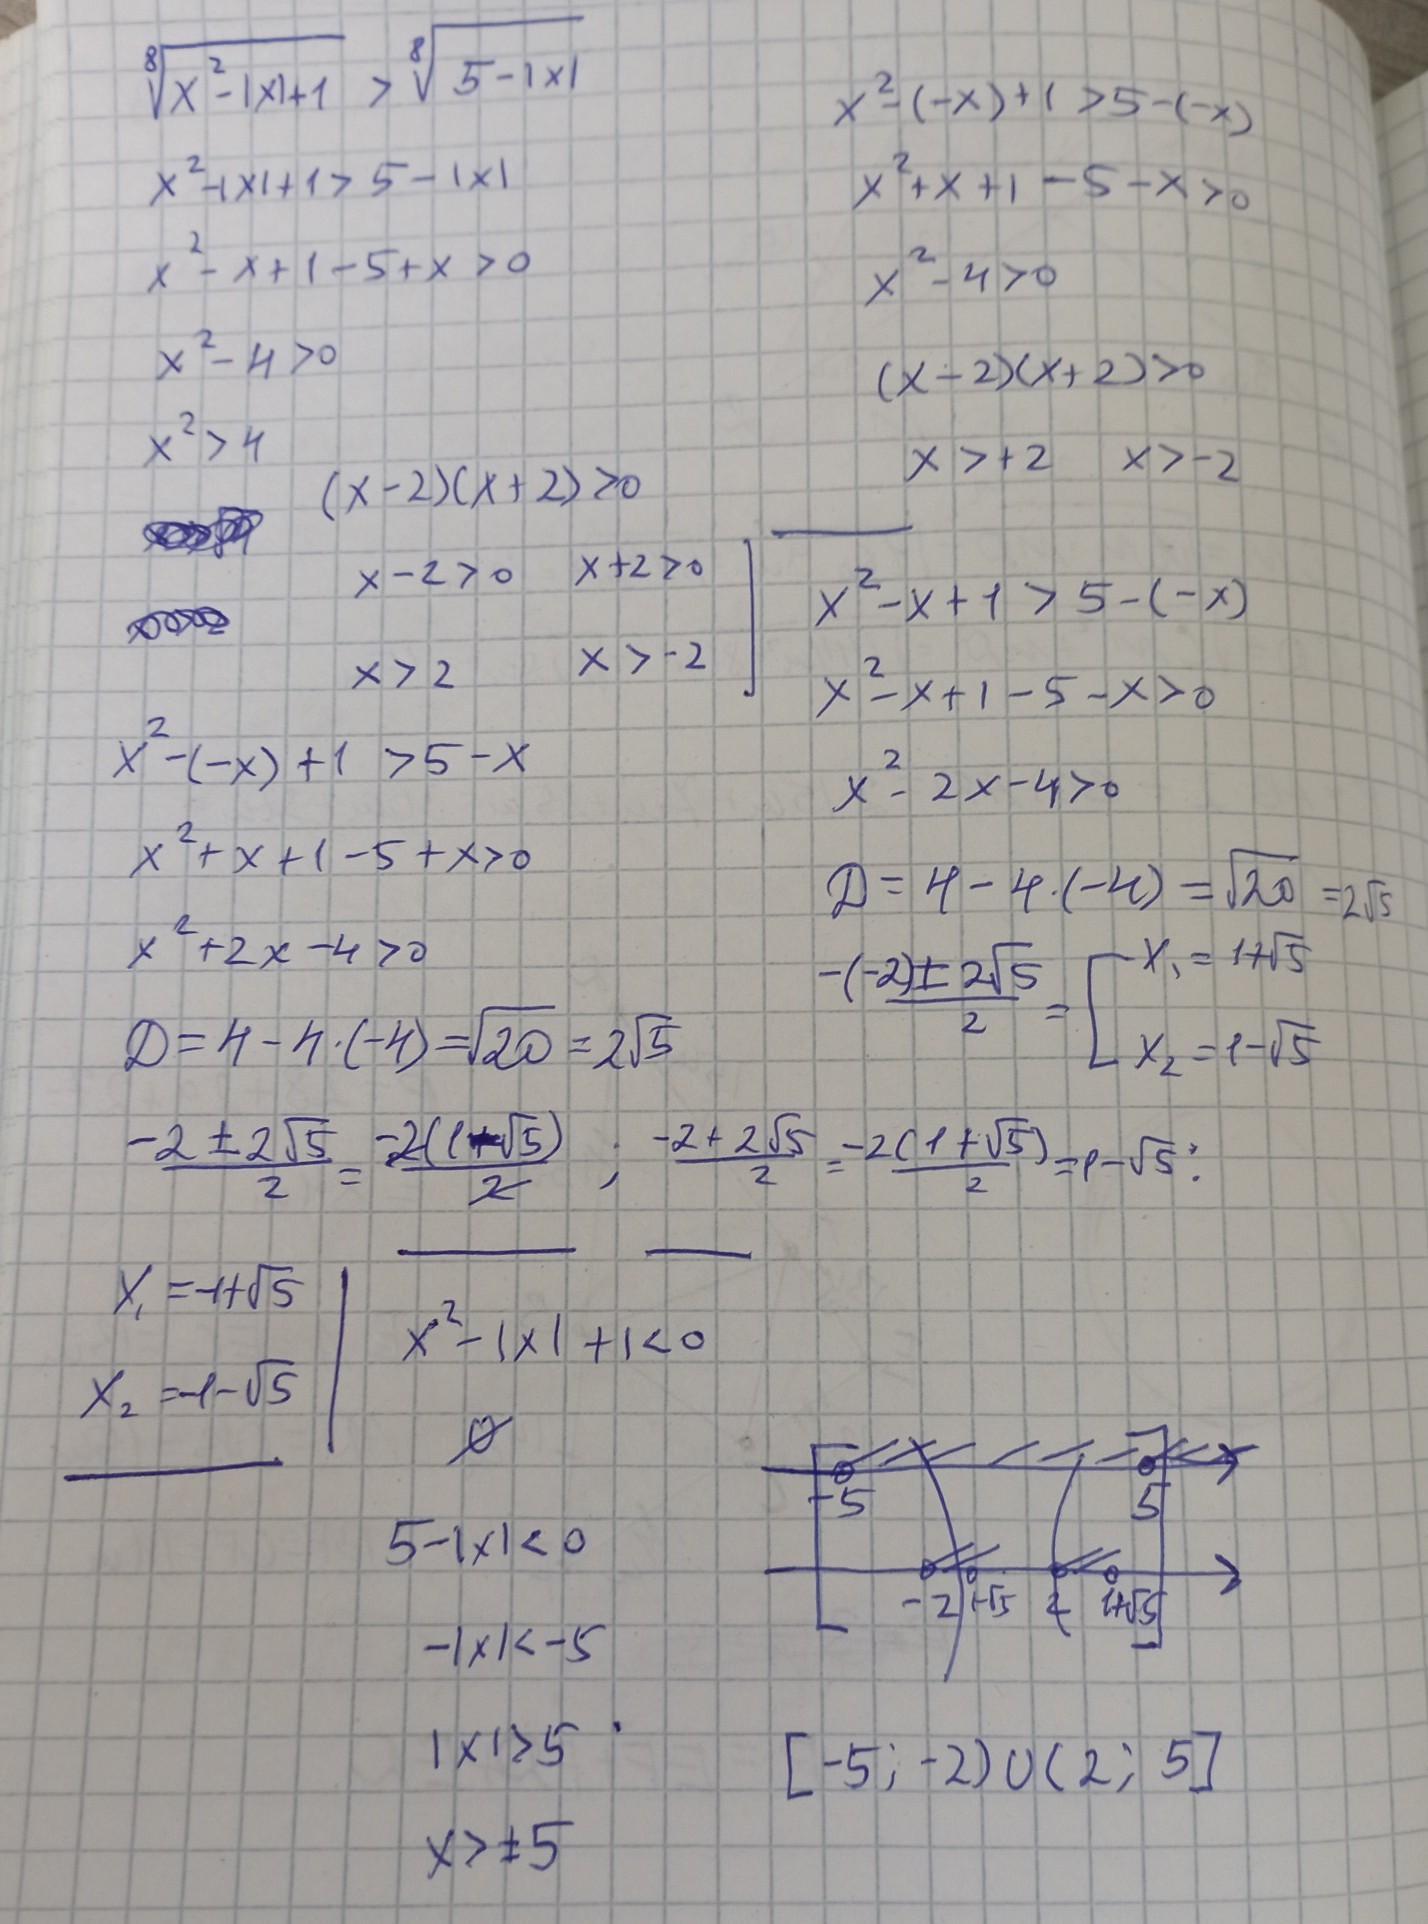 ⁸√(x² - |x| + 1) > ⁸√(5 - |x|)
x² - |x| + 1 > 5 - |x|
x² - x + 1 - 5 + x > 0
x² - 4 > 0
x² > 4
(x - 2)(x + 2) > 0
x - 2 > 0   x + 2 > 0
x > 2   x > -2
x² - (-x) + 1 > 5 - x
x² + x + 1 - 5 + x > 0
x² + 2x - 4 > 0
D = 4 - 4·(-4) = √20 = 2√5
(-2 ± 2√5)/2 = -2(1+√5)/2 ; (-2 + 2√5)/2 = -2(1 + √5)/2 = 1 - √5 :
x₁ = -1+√5
x₂ = -1-√5
x² - |x| + 1 < 0
∅
5 - |x| < 0
-|x| < -5
|x| > 5
x > ±5
x² - (-x) + 1 > 5 - (-x)
x² + x + 1 - 5 - x > 0
x² - 4 > 0
(x - 2)(x + 2) > 0
x > +2   x > -2
x² - x + 1 > 5 - (-x)
x² - x + 1 - 5 - x > 0
x² - 2x - 4 > 0
D = 4 - 4·(-4) = √20 = 2√5
(-(-2) ± 2√5)/2 = [ x₁ = 1+√5
x₂ = 1-√5
-5   5
-2   1-√5   2   1+√5
[-5; -2) ∪ (2; 5]